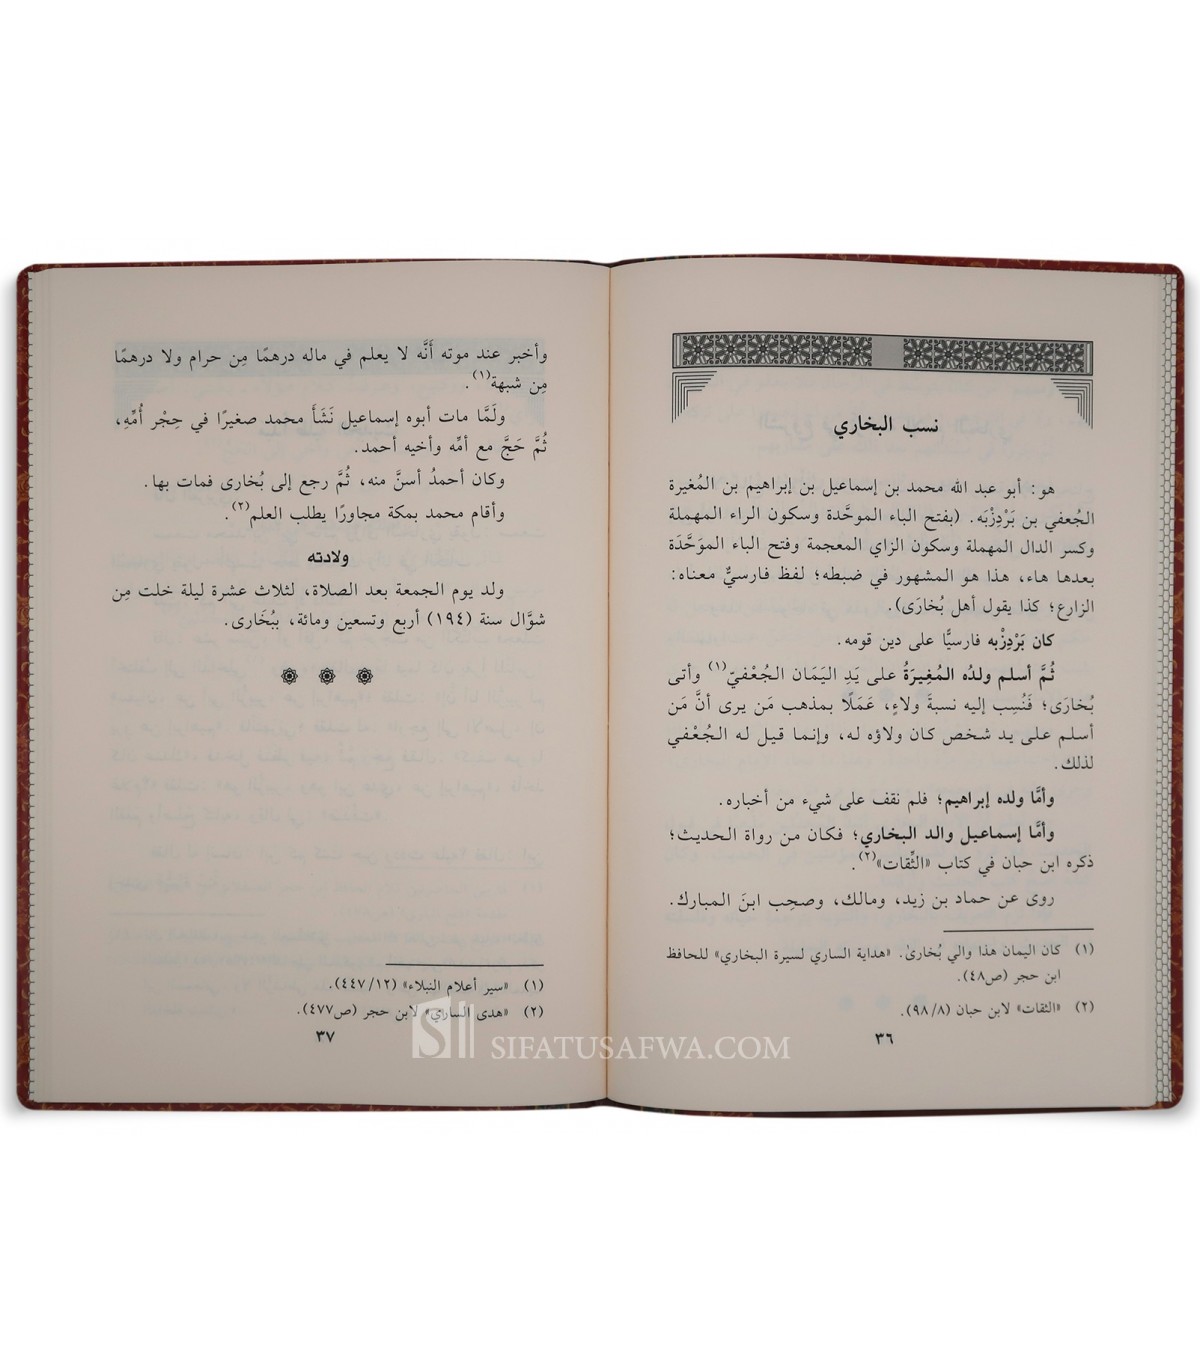 نسب البخاري
هو: أبو عبد الله محمد بن إسماعيل بن إبراهيم بن المُغيرة
الجُعفي بن بَرْدِزْبَه. (بفتح الباء الموحَّدة وسكون الراء المهملة
وكسر الدال المهملة وسكون الزاي المعجمة وفتح الباء الموَحَّدَة
بعدها هاء، هذا هو المشهور في ضبطه؛ لفظ فارسيٌّ معناه:
الزارع؛ كذا يقول أهل بُخارَى).
كان بَرْدِزْبه فارسيًّا على دين قومه.
ثُمَّ أسلم ولدُه المُغِيرَةُ على يَدِ اليَمَان الجُعْفيّ(١) وأتى
بُخارَى؛ فَنُسِب إليه نسبةَ ولاءٍ، عَمَلًا بمذهب مَن يرى أنَّ مَن
أسلم على يد شخص كان ولاؤه له، وإنما قيل له الجُعْفي
لذلك.
وأمَّا ولده إبراهيم؛ فلم نقف على شيء من أخباره.
وأمَّا إسماعيل والد البخاري؛ فكان من رواة الحديث؛
ذكره ابن حبان في كتاب «الثِّقات»(٢).
روى عن حماد بن زيد، ومالك، وصحِب ابنَ المبارك.
(١) كان اليمان هذا والي بُخارىٰ. «هداية الساري لسيرة البخاري» للحافظ
ابن حجر (ص٤٨).
(٢) «الثقات» لابن حبان (٩٨/٨).
٣٦
وأخبر عند موته أَنَّه لا يعلم في ماله درهمًا مِن حرام ولا درهمًا
مِن شبهة(١).
ولَمَّا مات أبوه إسماعيل نَشَأَ محمد صغيرًا في حِجْر أُمِّهِ،
ثُمَّ حَجَّ مع أمِّه وأخيه أحمد.
وكان أحمدُ أسنَّ منه، ثُمَّ رجع إلى بُخارى فمات بها.
وأقام محمد بمكة مجاورًا يطلب العلم(٢).
ولادته
ولد يوم الجمعة بعد الصلاة، لثلاث عشرة ليلة خلت مِن
شوَّال سنة (١٩٤) أربع وتسعين ومائة، ببُخَارى.
(١) «سير أعلام النبلاء» (٤٤٧/١٢).
(٢) «هدى الساري» لابن حجر (ص٤٧٧).
٣٧
SIFATUSAFWA.COM